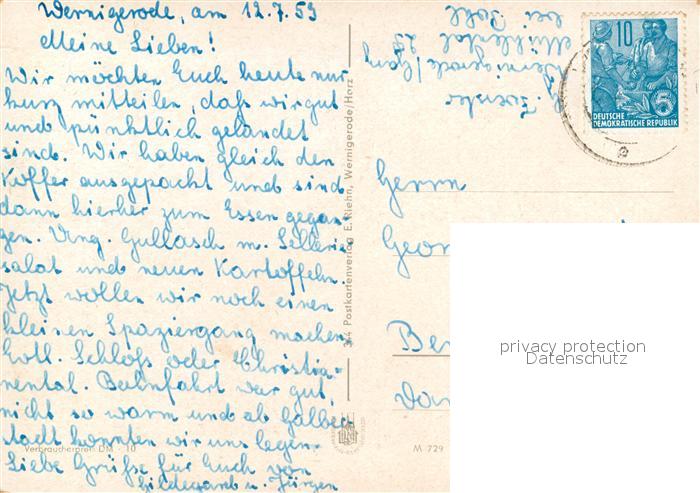 Wernigerode, am 12.7.59
Meine Lieben!
Wir möchten Euch heute nur
kurz mitteilen, daß wir gut
und pünktlich gelandet
sind. Wir haben gleich den
Koffer ausgepackt und sind
dann hierher zum Essen gegan-
gen. Ung. Gullasch m. Sellerie
salat und neuen Kartoffeln.
Jetzt wollen wir noch einen
kleinen Spaziergang machen
Evtl. Schloß oder Christia-
nental. Bahnfahrt war gut,
nicht so warm und ab Halber
stadt konnten wir uns legen.
Liebe Grüße für Euch von
Hildegard u. Jürgen
Verbraucherpreis DM -10
3/4 Postkartenverlag E. Riehn, Wernigerode/Harz
M 729
Wernigerode/Harz
Mühlental 25
bei Pohl
10
5
DEUTSCHE
DEMOKRATISCHE REPUBLIK
Herrn
Geor
Be
privacy protection
Datenschutz